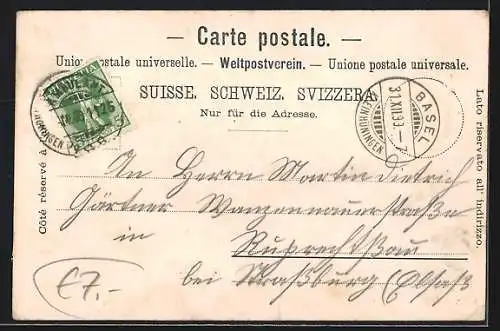 – Carte postale. –
Union postale universelle. – Weltpostverein. – Unione postale universale.
SUISSE. SCHWEIZ. SVIZZERA.
Nur für die Adresse.
Côté réservé à
Lato riservato all' indirizzo.
BASEL
31.XII.99.–7
An Herrn Martin Dietrich
Gärtner Wanzenauerstraße
in
Ruprechtsau
bei Straßburg (Elsaß
£7.-